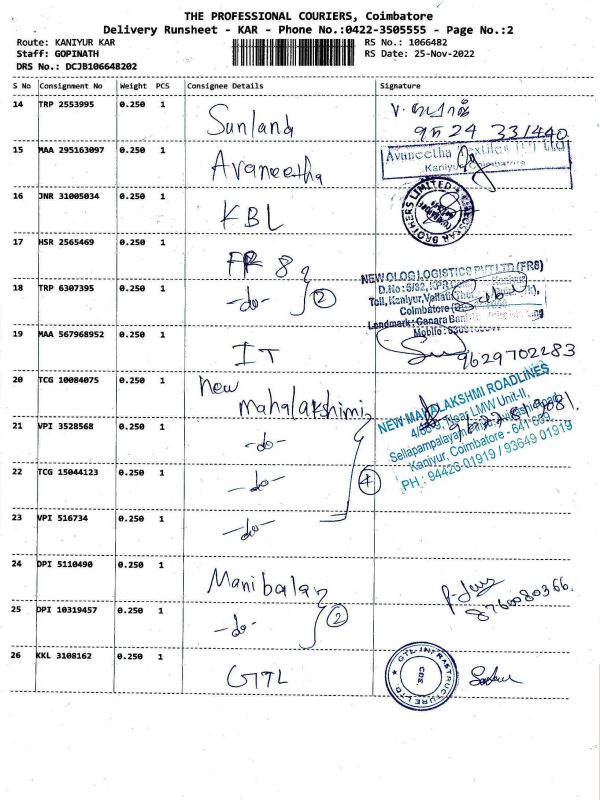 THE PROFESSIONAL COURIERS, Coimbatore
Delivery Runsheet - KAR - Phone No.:0422-3505555 - Page No.:2
Route: KANIYUR KAR
RS No.: 1066482
Staff: GOPINATH
RS Date: 25-Nov-2022
DRS No.: DCJB106648202
S No Consignment No Weight PCS Consignee Details Signature
14 TRP 2553995 0.250 1 Sunland
24 331440
15 MAA 295163097 0.250 1 Avaneetha
Avaneetha Textiles (P) Ltd
Kaniyur, Coimbatore
16 JNR 31005034 0.250 1 KBL
BROTHERS LIMITED
17 HSR 2565469 0.250 1 FR 8
NEW OLOG LOGISTICS PVT LTD (FR8)
18 TRP 6307395 0.250 1 -do- 2
D.No: 5/32, KPR
Toll, Kaniyur,
Coimbatore
Landmark: Canara Bank
Mobile:
19 MAA 567968952 0.250 1 IT
9629702283
20 TCG 10084075 0.250 1 New
Mahalakshmi
NEW MAHALAKSHMI ROADLINES
21 VPI 3528568 0.250 1 -do-
Near LMW Unit-II,
Sellapampalayam
Kaniyur, Coimbatore - 641 659
PH : 94426 01919 / 93649 01919
22 TCG 15044123 0.250 1 -do- 4
23 VPI 516734 0.250 1 -do-
24 DPI 5110490 0.250 1 Manibalaz
8760080366.
25 DPI 10319457 0.250 1 -do- 2
26 KKL 3108162 0.250 1 GTL
GTL INFRASTRUCTURE LTD.
CBE.